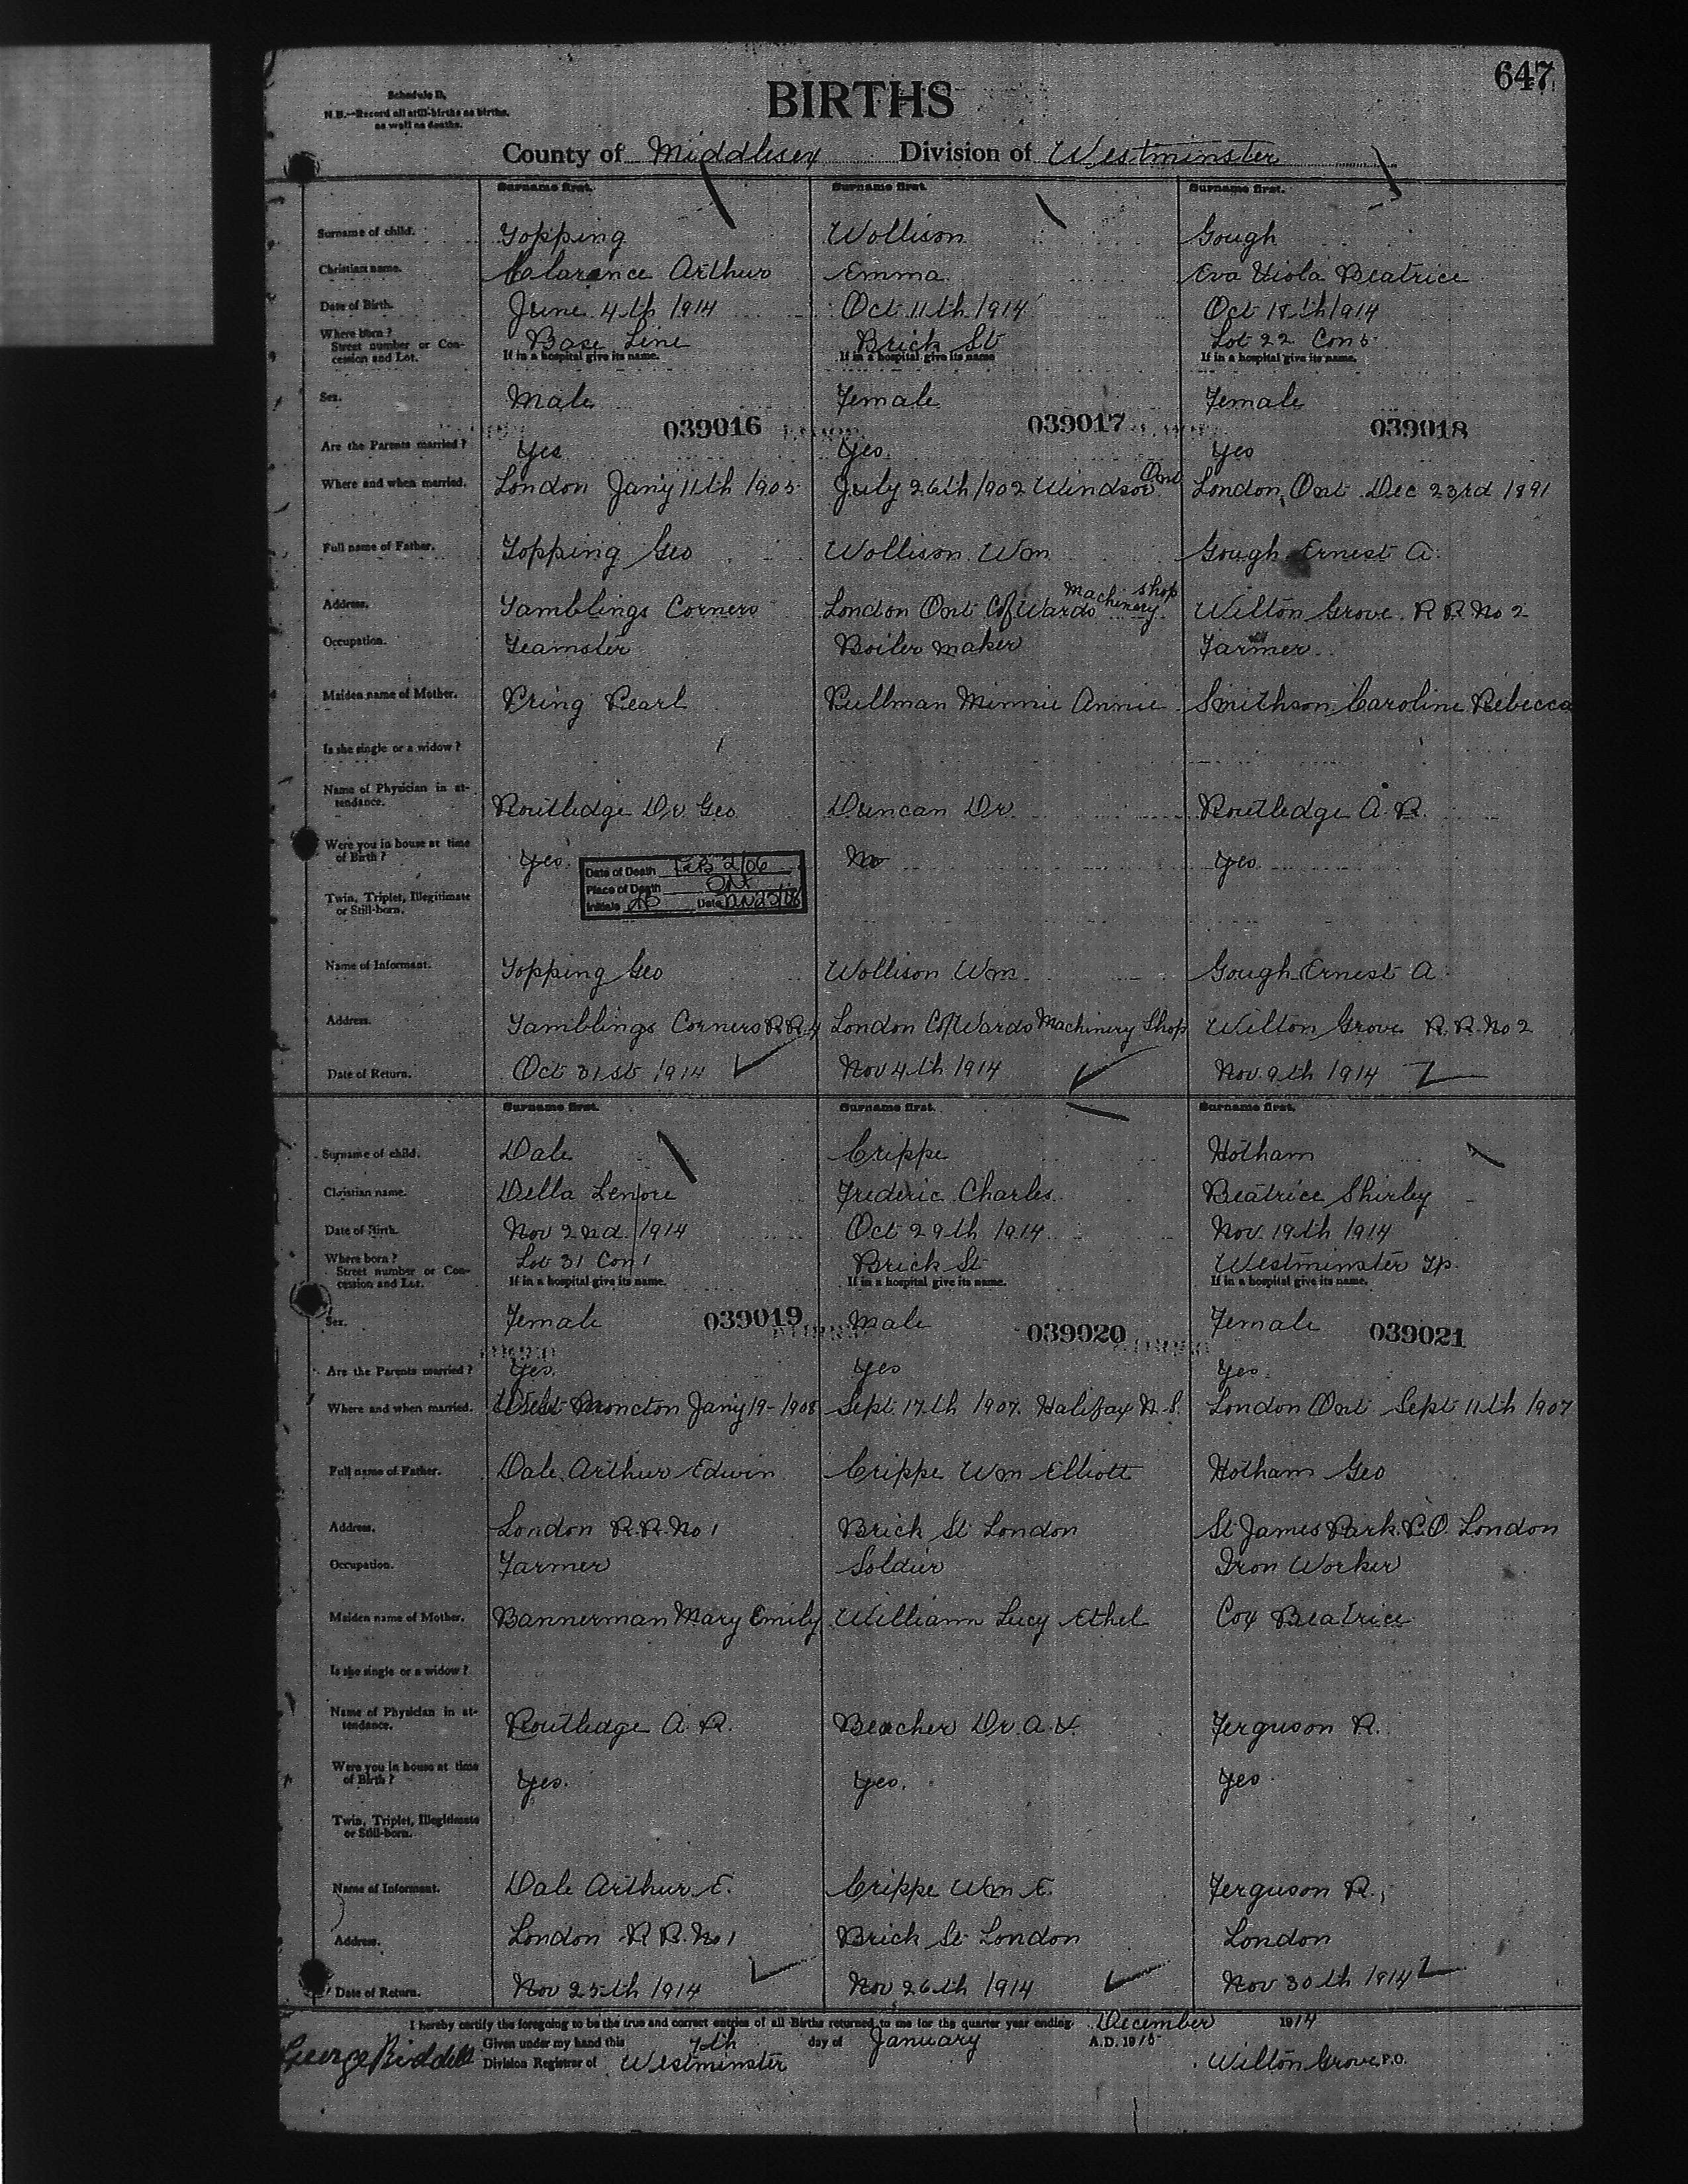 647
Schedule D,
N.B.—Record all still-births as births, as well as deaths.
BIRTHS
County of Middlesex Division of Westminster
Surname first. Surname first. Surname first.
Surname of child. Topping Wollison Gough
Christian name. Clarance Arthur Emma Eva Viola Beatrice
Date of Birth. June 4th 1914 Oct 11th 1914 Oct 18th 1914
Where born? Street number or Concession and Lot. Base Line Brick St Lot 22 Con 5
If in a hospital give its name. If in a hospital give its name If in a hospital give its name.
Sex. Male Female Female
039016 039017 039018
Are the Parents married? Yes Yes Yes
Where and when married. London Jany 11th 1905 July 26th 1902 Windsor Ont London, Ont. Dec 23rd 1891
Full name of Father. Topping Geo Wollison Wm Gough Ernest A.
Address. Tamblings Corners London Ont C/of Wards Machinery Shop Wilton Grove R R No 2
Occupation. Teamster Boiler maker Farmer
Maiden name of Mother. Pring Pearl Pullman Minnie Annie Smithson Caroline Rebecca
Is she single or a widow?
Name of Physician in attendance. Routledge Dr Geo Duncan Dr Routledge A. R.
Were you in house at time of Birth? Yes No Yes
Date of Death Feb 2/06
Place of Death Ont
Initials Date
Twin, Triplet, Illegitimate or Still-born.
Name of Informant. Topping Geo Wollison Wm Gough Ernest A
Address. Tamblings Corners R R 4 London C/of Wards Machinery Shop Wilton Grove R. R. No 2
Date of Return. Oct 31st 1914 Nov 4th 1914 Nov. 9th 1914
Surname first. Surname first. Surname first.
Surname of child. Dale Crippe Hotham
Christian name. Della Lenore Frederic Charles Beatrice Shirley
Date of Birth. Nov 2nd 1914 Oct 29th 1914 Nov. 19th 1914
Where born? Street number or Concession and Lot. Lot 31 Con 1 Brick St Westminster Tp.
If in a hospital give its name. If in a hospital give its name. If in a hospital give its name.
Sex. Female Male Female
039019 039020 039021
Are the Parents married? Yes. Yes Yes
Where and when married. Moncton Jany 19-1908 Sept. 17th 1907. Halifax N.S. London Ont Sept 11th 1907
Full name of Father. Dale Arthur Edwin Crippe Wm Elliott Hotham Geo
Address. London R.R. No 1 Brick St London St James Park P.O. London
Occupation. Farmer Soldier Iron Worker
Maiden name of Mother. Bannerman Mary Emily Williann Lucy Ethel Cox Beatrice
Is she single or a widow?
Name of Physician in attendance. Routledge A. R. Beacher Dr. A. Ferguson R.
Were you in house at time of Birth? Yes. Yes. Yes
Twin, Triplet, Illegitimate or Still-born.
Name of Informant. Dale Arthur E. Crippe Wm E. Ferguson R.
Address. London R R. No 1 Brick St London London
Date of Return. Nov 25th 1914 Nov 26th 1914 Nov 30th 1914
I hereby certify the foregoing to be the true and correct entries of all Births returned to me for the quarter year ending December 1914
Given under my hand this 7th day of January A.D. 1915
George Riddell Division Registrar of Westminster Wilton Grove P.O.